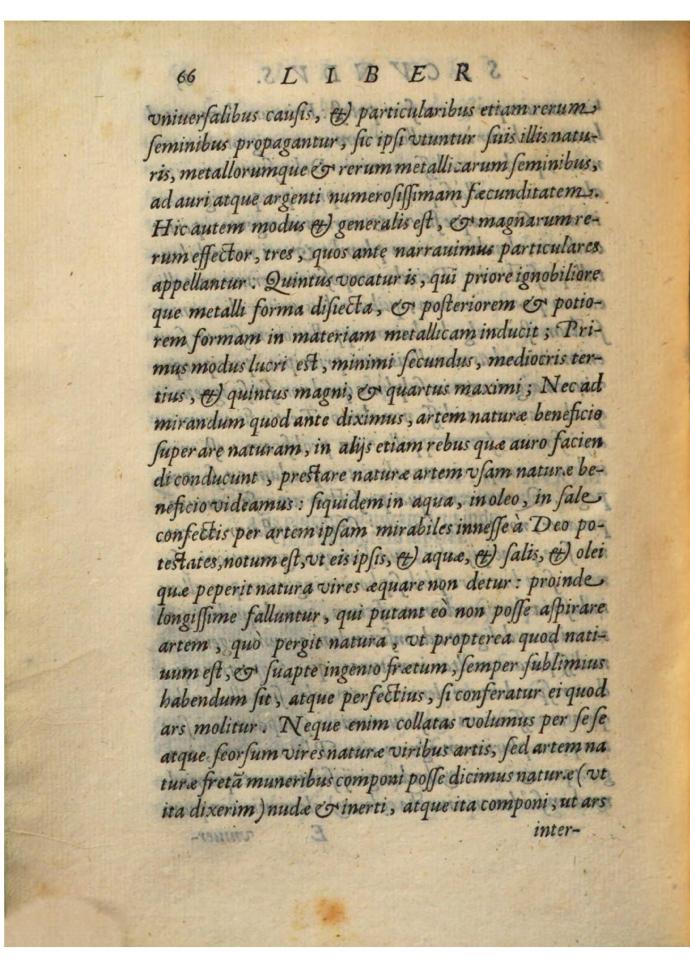 66 LIBER
vniuersalibus causis, & particularibus etiam rerum
seminibus propagantur, sic ipsi vtuntur suis illis natu-
ris, metallorumque & rerum metallicarum seminibus,
ad auri atque argenti numerosissimam fæcunditatem.
Hic autem modus & generalis est, & magnarum re-
rum effector, tres, quos ante narrauimus particulares
appellantur: Quintus vocatur is, qui priore ignobiliore
que metalli forma disiecta, & posteriorem & potio-
rem formam in materiam metallicam inducit; Pri-
mus modus lucri est, minimi secundus, mediocris ter-
tius, & quintus magni, & quartus maximi; Nec ad
mirandum quod ante diximus, artem naturæ beneficio
superare naturam, in alijs etiam rebus quæ auro facien
di conducunt, prestare naturæ artem vsam naturæ be-
neficio videamus: siquidem in aqua, in oleo, in sale
confectis per artem ipsam mirabiles innesse à Deo po-
testates, notum est, vt eis ipsis, & aquæ, & salis, & olei
quæ peperit natura vires æquare non detur: proinde
longissime falluntur, qui putant eò non posse aspirare
artem, quò pergit natura, vt propterea quod nati-
uum est, & suapte ingenio frætum, semper sublimius
habendum sit, atque perfectius, si conferatur ei quod
ars molitur. Neque enim collatas volumus per se se
atque seorsum vires naturæ viribus artis, sed artem na
turæ fretã muneribus componi posse dicimus naturæ (vt
ita dixerim) nudæ & inerti, atque ita componi, ut ars
inter-